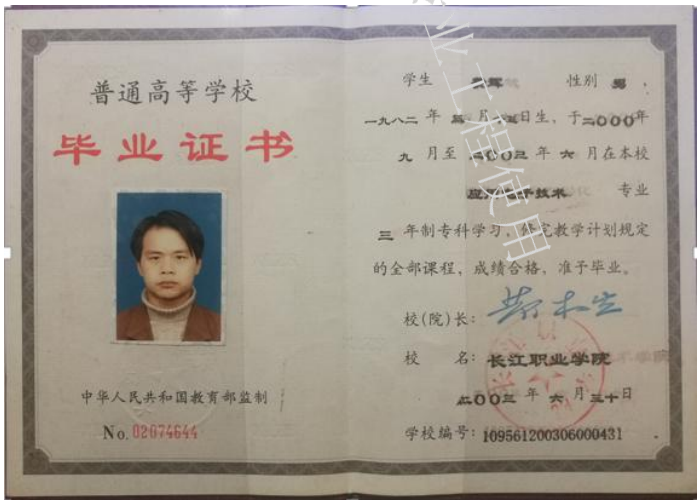 普通高等学校
毕业证书
中华人民共和国教育部监制
No. 02074644
学生 性别 男，
一九八二年 月 日生，于二〇〇〇年
九月至二〇〇三年六月在本校
应用电子技术 专业
三年制专科学习，修完教学计划规定
的全部课程，成绩合格，准予毕业。
校(院)长：
校 名：长江职业学院
二〇〇三年六月三十日
学校编号：109561200306000431
业工程使用